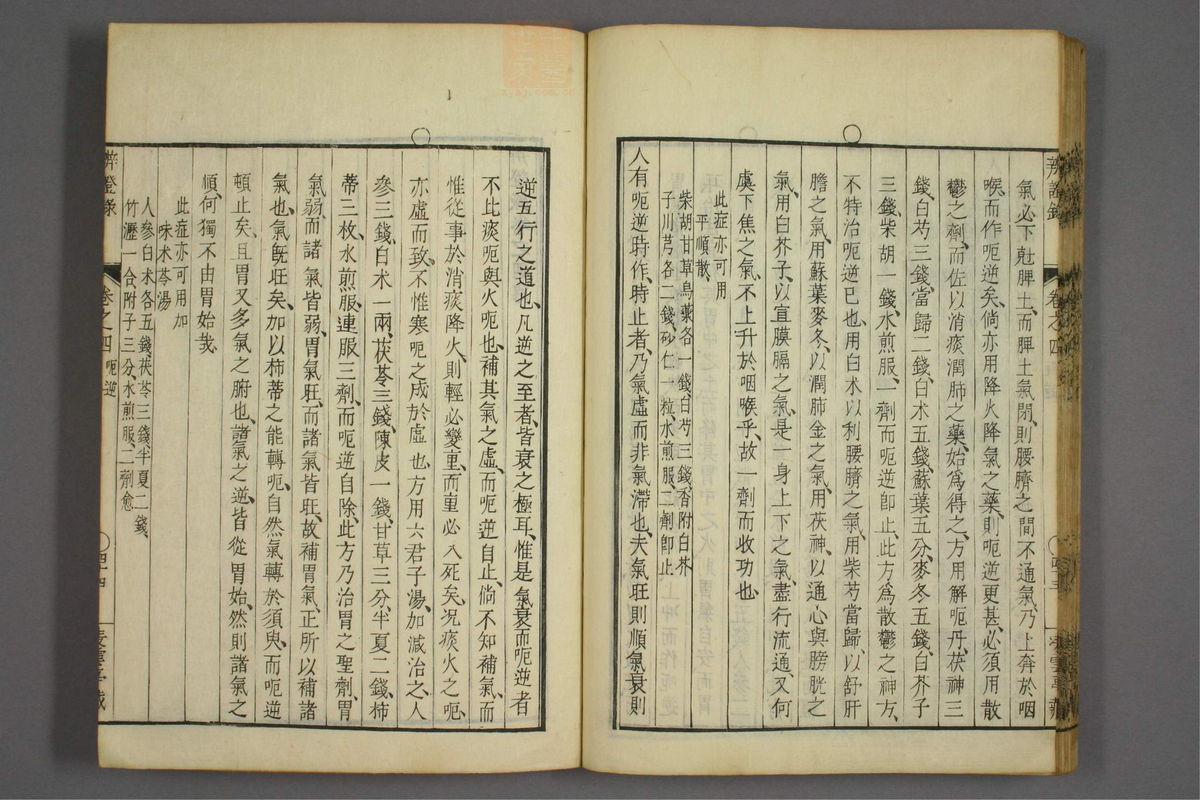 氣必下尅脾土而脾土氣閉則腰臍之間不通氣乃上奔於咽
喉而作呃逆矣倘亦用降火降氣之藥則呃逆更甚必須用散
鬱之劑而佐以消痰潤肺之藥始爲得之方用解呃丹茯神三
錢白芍三錢當歸二錢白朮五錢蘇葉五分麥冬五錢白芥子
三錢柴胡一錢水煎服一劑而呃逆卽止此方爲散鬱之神方
不特治呃逆已也用白朮以利腰臍之氣用柴芍當歸以舒肝
膽之氣用蘇葉麥冬以潤肺金之氣用茯神以通心與膀胱之
氣用白芥子以宣膜膈之氣是一身上下之氣盡行流通又何
虞下焦之氣不上升於咽喉乎故一劑而收功也
此症亦可用
平順散
柴胡甘草烏藥各一錢白芍三錢香附白芥
子川芎各二錢砂仁一粒水煎服二劑卽止
人有呃逆時作時止者乃氣虛而非氣滯也夫氣旺則順氣衰則
辨證錄
卷之四
逆五行之道也凡逆之至者皆衰之極耳惟是氣衰而呃逆者
不比痰呃與火呃也補其氣之虛而呃逆自止倘不知補氣而
惟從事於消痰降火則輕必變重而重必入死矣況痰火之呃
亦虛而致不惟寒呃之成於虛也方用六君子湯加減治之人
參三錢白朮一兩茯苓三錢陳皮一錢甘草三分半夏二錢柿
蒂三枚水煎服連服三劑而呃逆自除此方乃治胃之聖劑胃
氣弱而諸氣皆弱胃氣旺而諸氣皆旺故補胃氣正所以補諸
氣也氣旣旺矣加以柿蒂之能轉呃自然氣轉於須臾而呃逆
頓止矣且胃又多氣之腑也諸氣之逆皆從胃始然則諸氣之
順何獨不由胃始哉
此症亦可用加
味朮苓湯
人參白朮各五錢茯苓三錢半夏二錢
竹瀝一合附子三分水煎服二劑愈
辨證錄
卷之四 呃逆
四十四